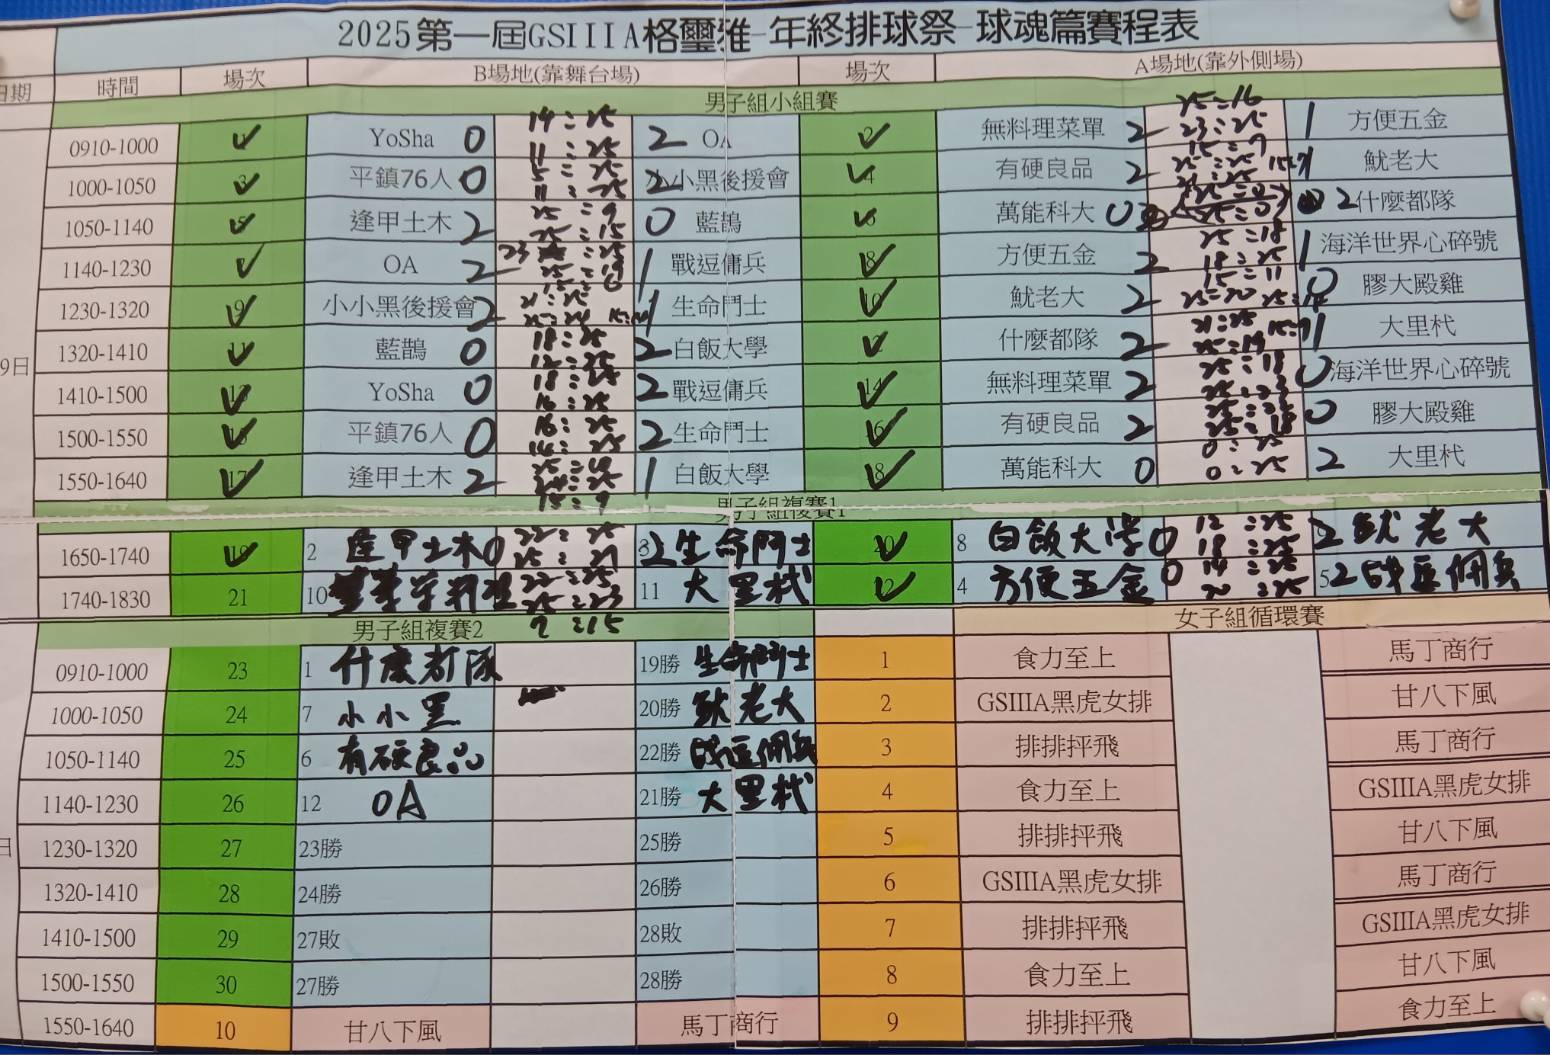 2025第一屆GSIIIA格璽雅-年終排球祭-球魂篇賽程表
日期 時間 場次 B場地(靠舞台場) 場次 A場地(靠外側場)
男子組小組賽
9日
0910-1000 YoSha 0 14:25 11:25 2 OA 無料理菜單 2 25:16 23:25 15:9 1 方便五金
1000-1050 平鎮76人 0 5:25 11:25 2 小小黑後援會 4 有硬良品 2 鱿老大
1050-1140 逢甲土木 2 25:9 25:15 0 藍鵲 萬能科大 0 2 什麼都隊
1140-1230 OA 2 1 戰逗傭兵 8 方便五金 2 25:18 18:25 15:11 1 海洋世界心碎號
1230-1320 9 小小黑後援會 2 21:25 1 生命鬥士 10 鱿老大 2 25:20 0 膠大殿雞
1320-1410 藍鵲 0 18:25 12:25 2 白飯大學 什麼都隊 2 21:25 25:19 1 大里杙
1410-1500 YoSha 0 18:25 16:25 2 戰逗傭兵 14 無料理菜單 2 25:18 0 海洋世界心碎號
1500-1550 平鎮76人 0 16:25 2 生命鬥士 16 有硬良品 2 0 膠大殿雞
1550-1640 17 逢甲土木 2 15:9 1 白飯大學 18 萬能科大 0 0:25 0:25 2 大里杙
男子組複賽1
1650-1740 19 2 逢甲土木 0 22:25 3 2 生命鬥士 20 8 白飯大學 0 12:25 18:25 2 鱿老大
1740-1830 21 10 22:25 25:23 7:15 11 大里杙 4 方便五金 0 14:25 20:25 5 2 戰逗傭兵
男子組複賽2 女子組循環賽
日
0910-1000 23 1 什麼都隊 19勝 生命鬥士 1 食力至上 馬丁商行
1000-1050 24 7 小小黑 20勝 鱿老大 2 GSIIIA黑虎女排 甘八下風
1050-1140 25 6 有硬良品 22勝 戰逗傭兵 3 排排抨飛 馬丁商行
1140-1230 26 12 OA 21勝 大里杙 4 食力至上 GSIIIA黑虎女排
1230-1320 27 23勝 25勝 5 排排抨飛 甘八下風
1320-1410 28 24勝 26勝 6 GSIIIA黑虎女排 馬丁商行
1410-1500 29 27敗 28敗 7 排排抨飛 GSIIIA黑虎女排
1500-1550 30 27勝 28勝 8 食力至上 甘八下風
1550-1640 10 甘八下風 馬丁商行 9 排排抨飛 食力至上